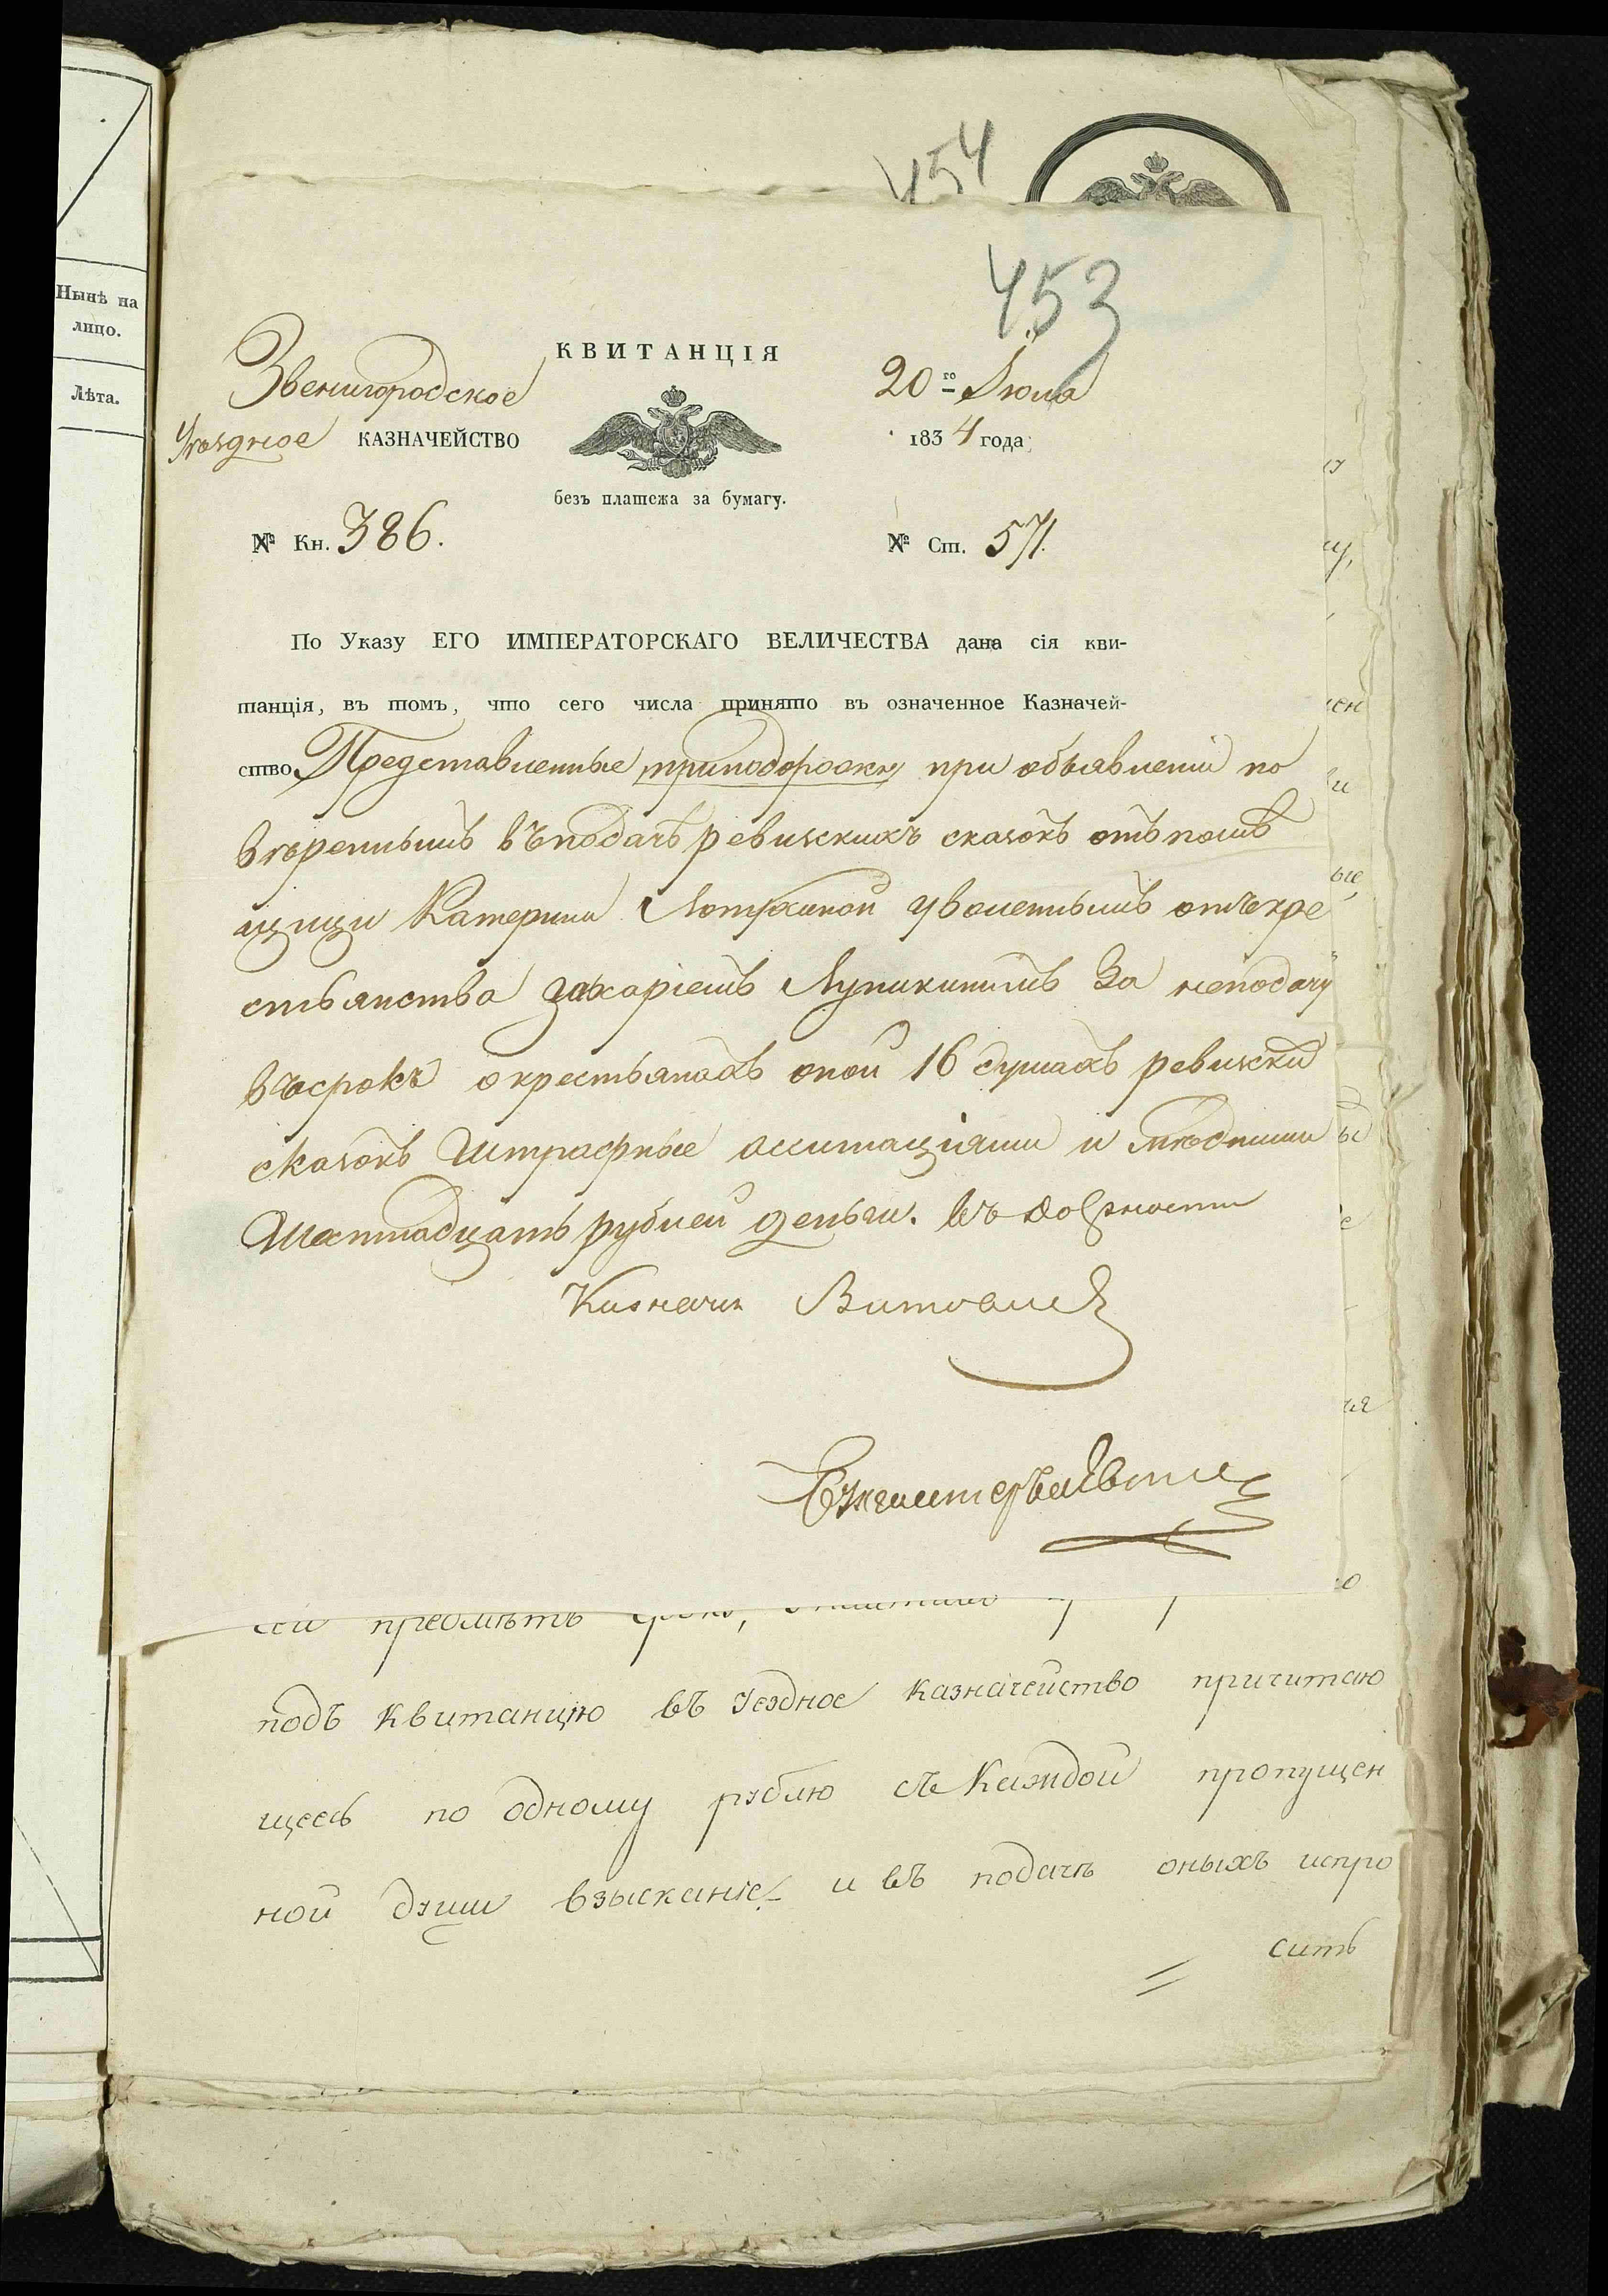 454
453
Нынѣ на
лицо.
Лѣта.
КВИТАНЦІЯ
Звенигородское
20го Июня
Уездное КАЗНАЧЕЙСТВО
1834 года
безъ платежа за бумагу.
№ Кн. 386.
№ Ст. 571.
По Указу ЕГО ИМПЕРАТОРСКАГО ВЕЛИЧЕСТВА дана сія кви-
танція, въ томъ, что сего числа принято въ означенное Казначей-
ство Представленные при объявленіи по
вѣреннымъ въ подачѣ ревизскихъ сказокъ отъ помѣ
щицы Катерины уволеннымъ отъ кре
стьянства Захаріемъ за неподачу
въ срокъ о крестьянахъ оной 16 душахъ ревизски
сказокъ Штрафные ассигнаціями и
Шестнадцать рублей деньги. въ должности
Казначея
Бухгалтеръ
сей предметъ
подъ квитанцію въ Уездное казначейство причитаю
щеесь по одному рублю съ каждой пропущен
ной души взысканіе и въ подачѣ оныхъ испро
сить